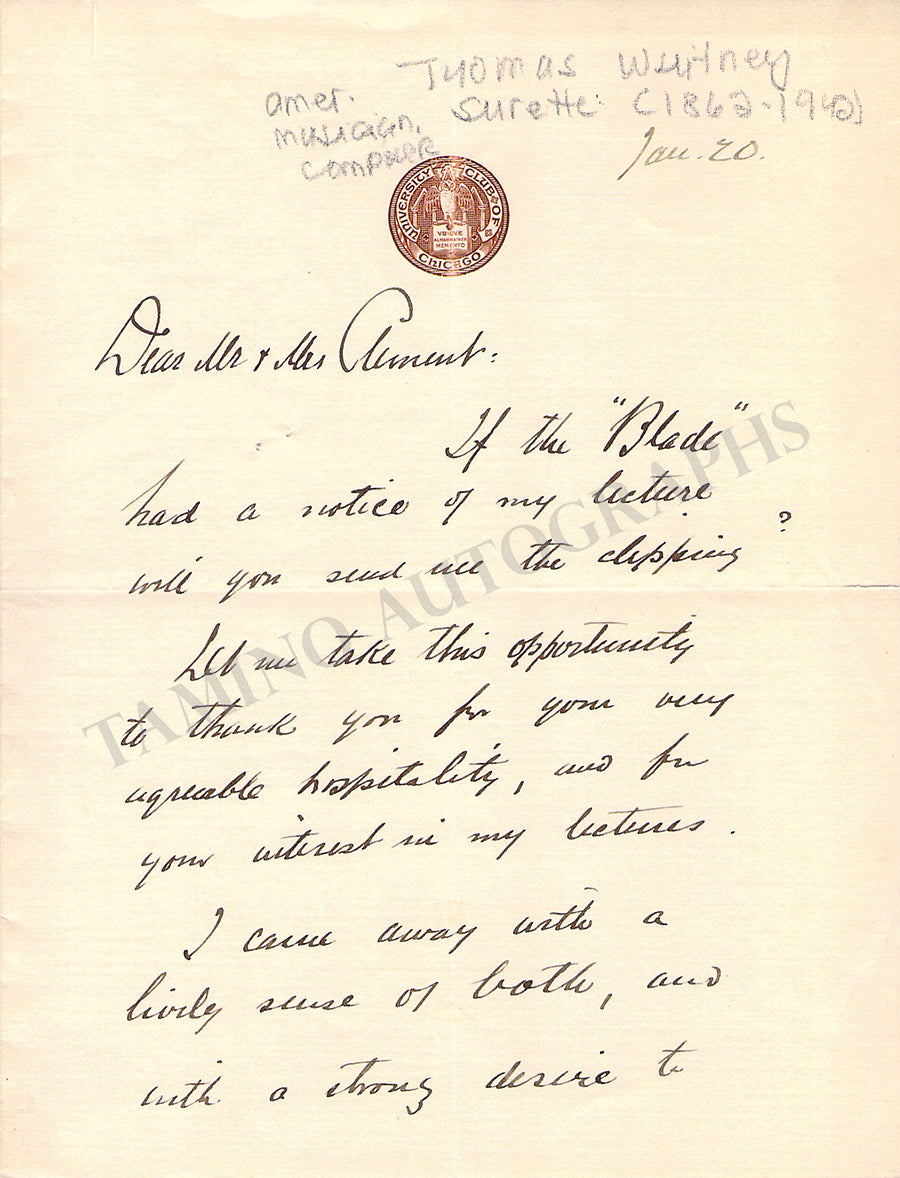 Thomas Whitney
Surette (1862-1942)
Amer.
Musician,
Composer
Jan. 20.
UNIVERSITY CLUB OF CHICAGO
VBIQVE
ALMAE MATRIS
MEMENTO
Dear Mr & Mrs Clement:
If the "Blade"
had a notice of my lecture
will you send me the clipping?
Let me take this opportunity
to thank you for your very
agreeable hospitality, and for
your interest in my lectures.
I came away with a
lively sense of both, and
with a strong desire to
TAMINO AUTOGRAPHS